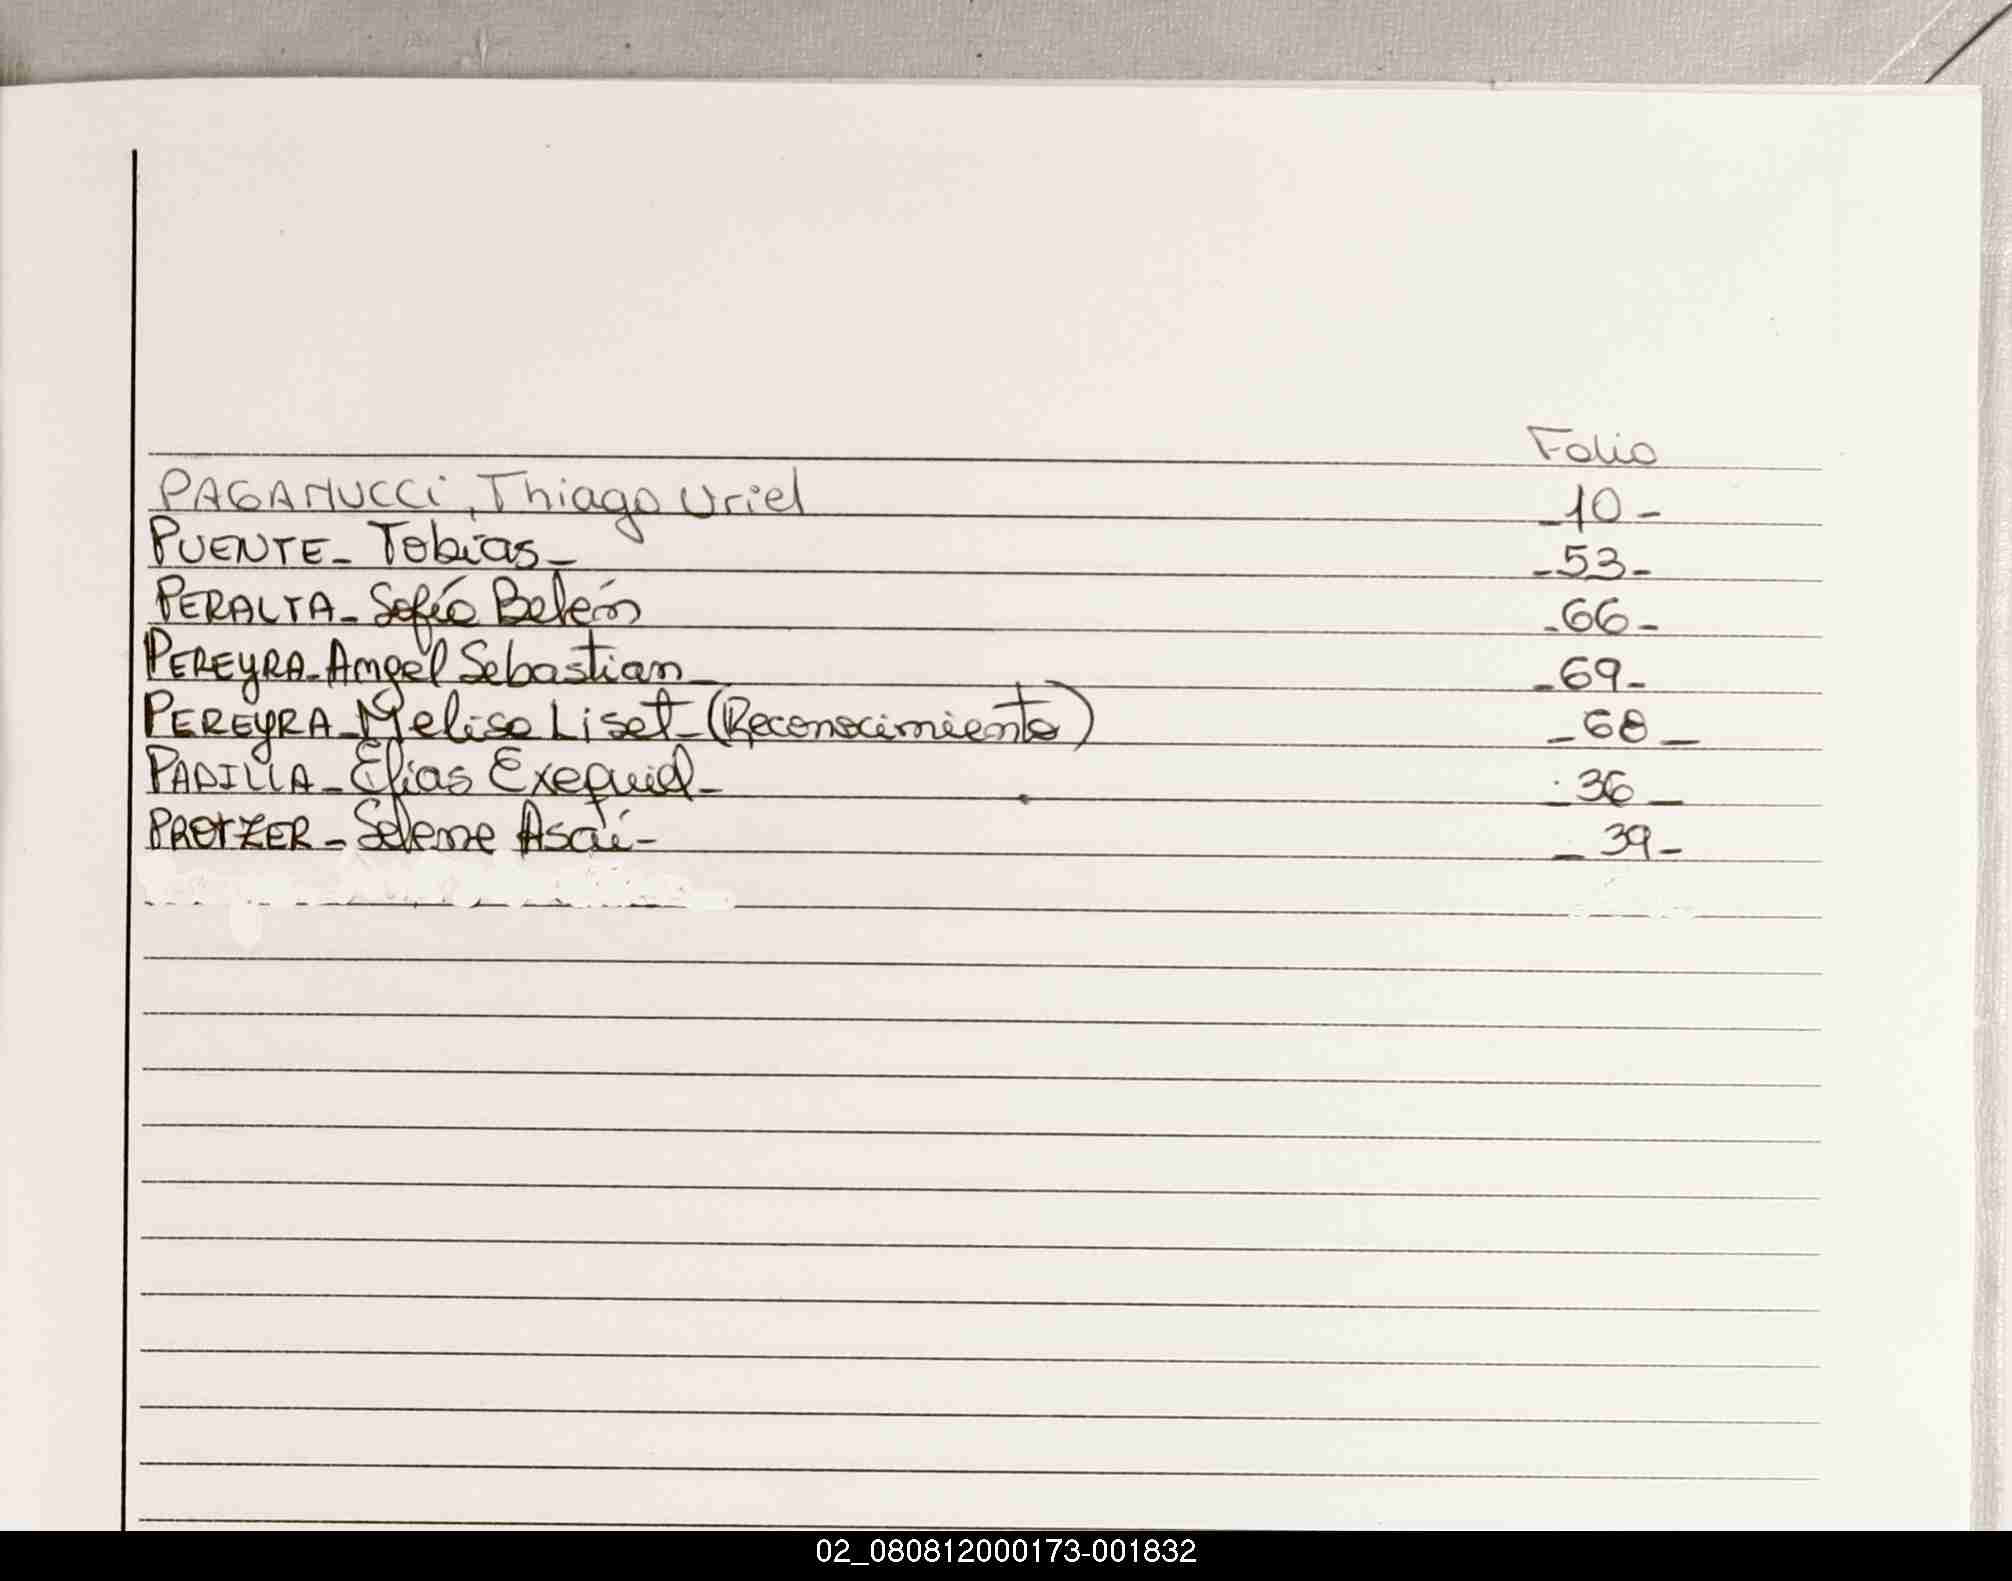 Folio
PAGANUCCi, Thiago Uriel _10_
PUENTE_ Tobias_ _53_
PERALTA_ Sofía Belén _66_
PEREYRA_Angel Sebastian_ _69_
PEREYRA_Melisa Liset_(Reconocimiento) _68_
PADILLA_ Elias Exequiel_ _36_
PROTZER_ Selene Asaí_ _39_
02_080812000173-001832